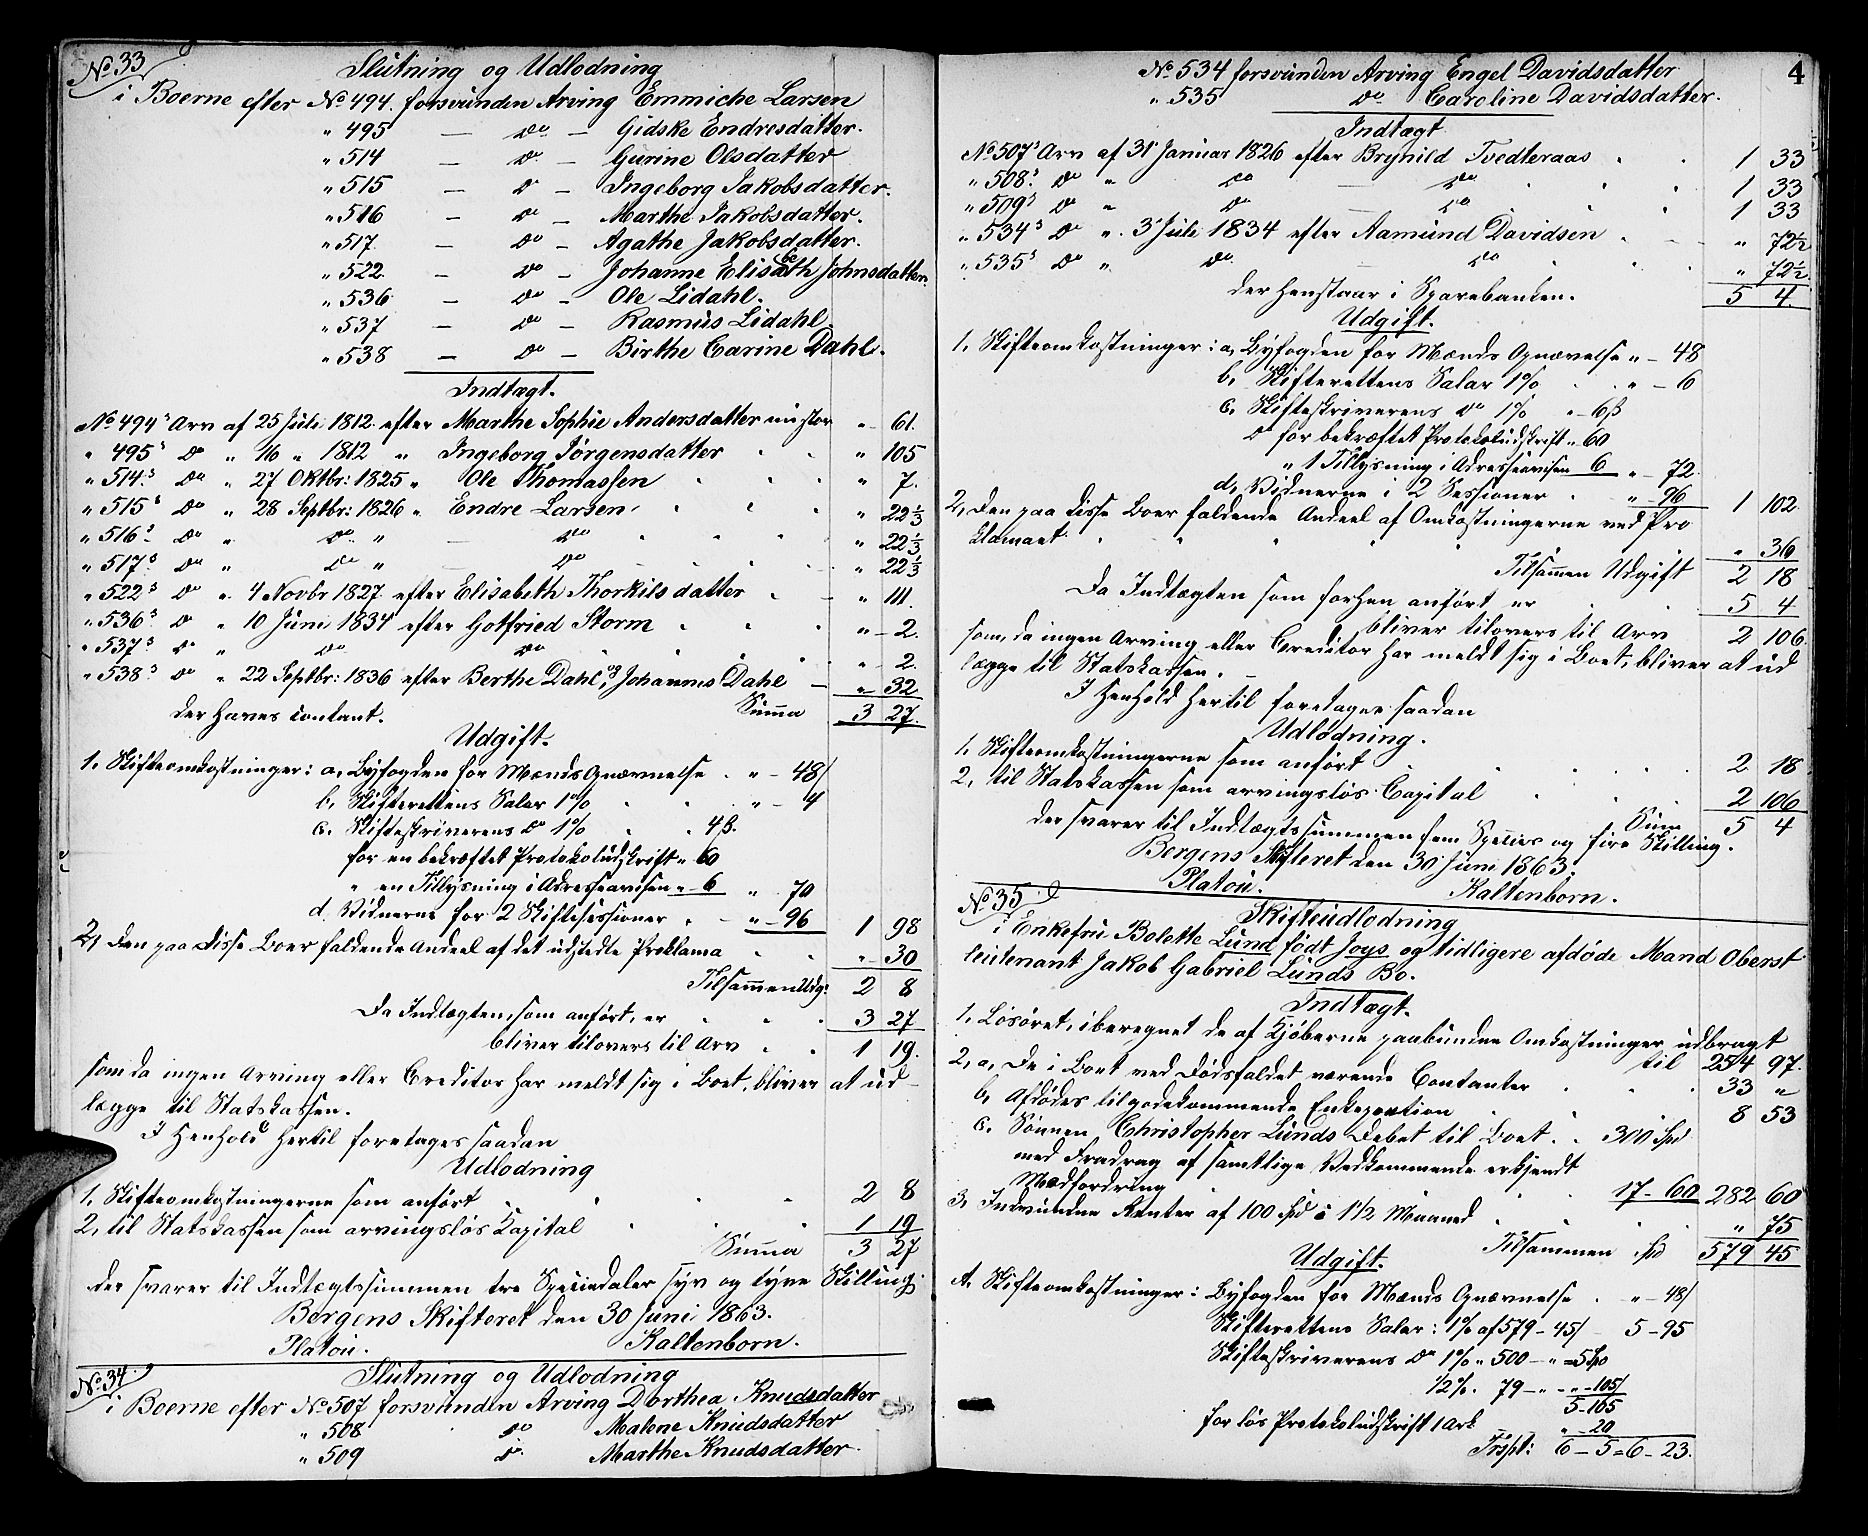 No. 33
Slutning og Udlodning
i Boerne efter No. 494. forsvunden Arving Emmiche Larsen
" 495 — Do — Gidske Endresdatter.
" 514 — Do — Gurine Olsdatter
" 515 — Do — Ingeborg Jakobsdatter.
" 516 — Do — Marthe Jakobsdatter.
" 517 — Do — Agathe Jakobsdatter.
" 522 — Do — Johanne Elisabeth Johnsdatter.
" 536 — Do — Ole Lidahl.
" 537 — Do — Rasmus Lidahl
" 538 — Do — Birthe Carine Dahl.
Indtægt.
No. 494s Arv af 25 Juli 1812 efter Marthe Sophie Andersdatter " 61.
" 495s Do " 16 " 1812 " Ingeborg Jørgensdatter " 105
" 514s Do " 27 Oktbr: 1825 " Ole Thomassen " 7.
" 515s Do " 28 Septbr: 1826 " Endre Larsen " 22 1/3
" 516s Do " Do " — Do " 22 1/3
" 517s Do " Do " — Do " 22 1/3
" 522s Do " 4 Novbr 1827 efter Elisabeth Thorkilsdatter " 111.
" 536s Do " 10 Juni 1834 efter Gotfried Storm " 2.
" 537s Do " Do Do " 2.
" 538s Do " 22 Septbr: 1836 efter Berthe Dahl og Johannes Dahl " 32
der haves contant. Summa 3 27.
Udgift.
1, Skifteomkostninger: a, Byfogden for Mænds Opnævnelse " - 48/
b, Skifterettens Salær 1% " - 4
c. Skifteskriverens Do 1% " 4 ß.
for en bekræftet Protokoludskrift " 60
" en Tillysning i Adresseavisen " 6 " 70
d. Vidnerne for 2 Skiftesessioner " - 96 1 98
2, Den paa disse Boer faldende Andeel af det udstedte Proklama " 30
Tilsammen Udg: 2 8
Da Indtægten, som anført, er 3 27
bliver tilovers til Arv 1 19.
som da ingen Arving eller Creditor har meldt sig i Boet, bliver at ud-
lægge til Statskassen.
I Henhold hertil foretages saadan
Udlodning
1. Skifteomkostningerne som anført 2 8
2, til Statskassen som arvingsløs Kapital 1 19
Summa 3 27
der svarer til Indtægtssummen tre Speciedaler syv og tyve Skilling.
Bergens Skifteret den 30 Juni 1863.
Platou. Kaltenborn.
No. 34.
Slutning og Udlodning
i Boerne efter No. 507 forsvunden Arving Dorthea Knudsdatter
" 508 Do Malene Knudsdatter
" 509 Do Marthe Knudsdatter.
4
No. 534 forsvunden Arving Engel Davidsdatter
" 535 Do Caroline Davidsdatter.
Indtægt
No. 507s Arv af 31 Januar 1826 efter Brynild Tvedteraas 1 33
" 508s Do " Do — Do 1 33
" 509s Do " Do — Do 1 33
" 534s Do " 3 Juli 1834 efter Aamund Davidsen " 72½
" 535s Do " Do Do " 72½
der henstaar i Sparebanken. 5 4
Udgift.
1, Skifteomkostninger: a, Byfogden for Mænds Opnævnelse " - 48
b, Skifterettens Salær 1% " - 6
c. Skifteskriverens Do 1% " - 6 ß
Do for bekræftet Protokoludskrift " 60
" 1 Tillysning i Adresseavisen 6 " - 72
d, Vidnerne i 2 Sessioner " - 96 1 102
2, Den paa disse Boer faldende Andeel af Omkostningerne ved Pro
klamaet " 36
Tilsammen Udgift 2 18
Da Indtægten som forhen anført er 5 4
bliver tilovers til Arv 2 106
som, da ingen Arving eller Creditor har meldt sig i Boet, bliver at ud
lægge til Statskassen.
I Henhold hertil foretages saadan
Udlodning.
1, Skifteomkostningerne som anført 2 18
2, til Statskassen som arvingsløs Capital 2 106
Sum 5 4
der svarer til Indtægtssummen fem Species og fire Skilling.
Bergens Skifteret den 30 Juni 1863.
Platou. Kaltenborn.
No. 35.
Skifteudlodning
i Enkefru Bolette Lund født Joys og tidligere afdøde Mand Oberst
leutenant Jakob Gabriel Lunds Bo.
Indtægt.
1, Løsøret, iberegnet de af Kjøberne paabudne Omkostninger udbragt
til 254 97.
2, a, De i Boet ved Dødsfaldet værende Contanter 33 "
b, Afdødes tilgodekommende Enkepention 8 53
c. Sønnen Christopher Lunds Debet til Boet 300 Spd
med Fradrag af samtlige Vedkommende erkjendt
Modfordring 17 - 60 282 60
3, Indvundne Renter af 100 Spd i 1½ Maaned " 75
Tilsammen Spd 579 45
Udgift.
A. Skifteomkostninger: Byfogden for Mænds Opnævnelse " - 48/
Skifterettens Salær: 1% af 579 - 45/ 5 - 95
Skifteskriverens Do 1% " 500 - " = 5 Spd
1/2% 79 - " - " - 105/
5 - 105
for løs Protokoludskrift 1 Ark " - 20
Trspt: 6 - 5 = 6 - 23.